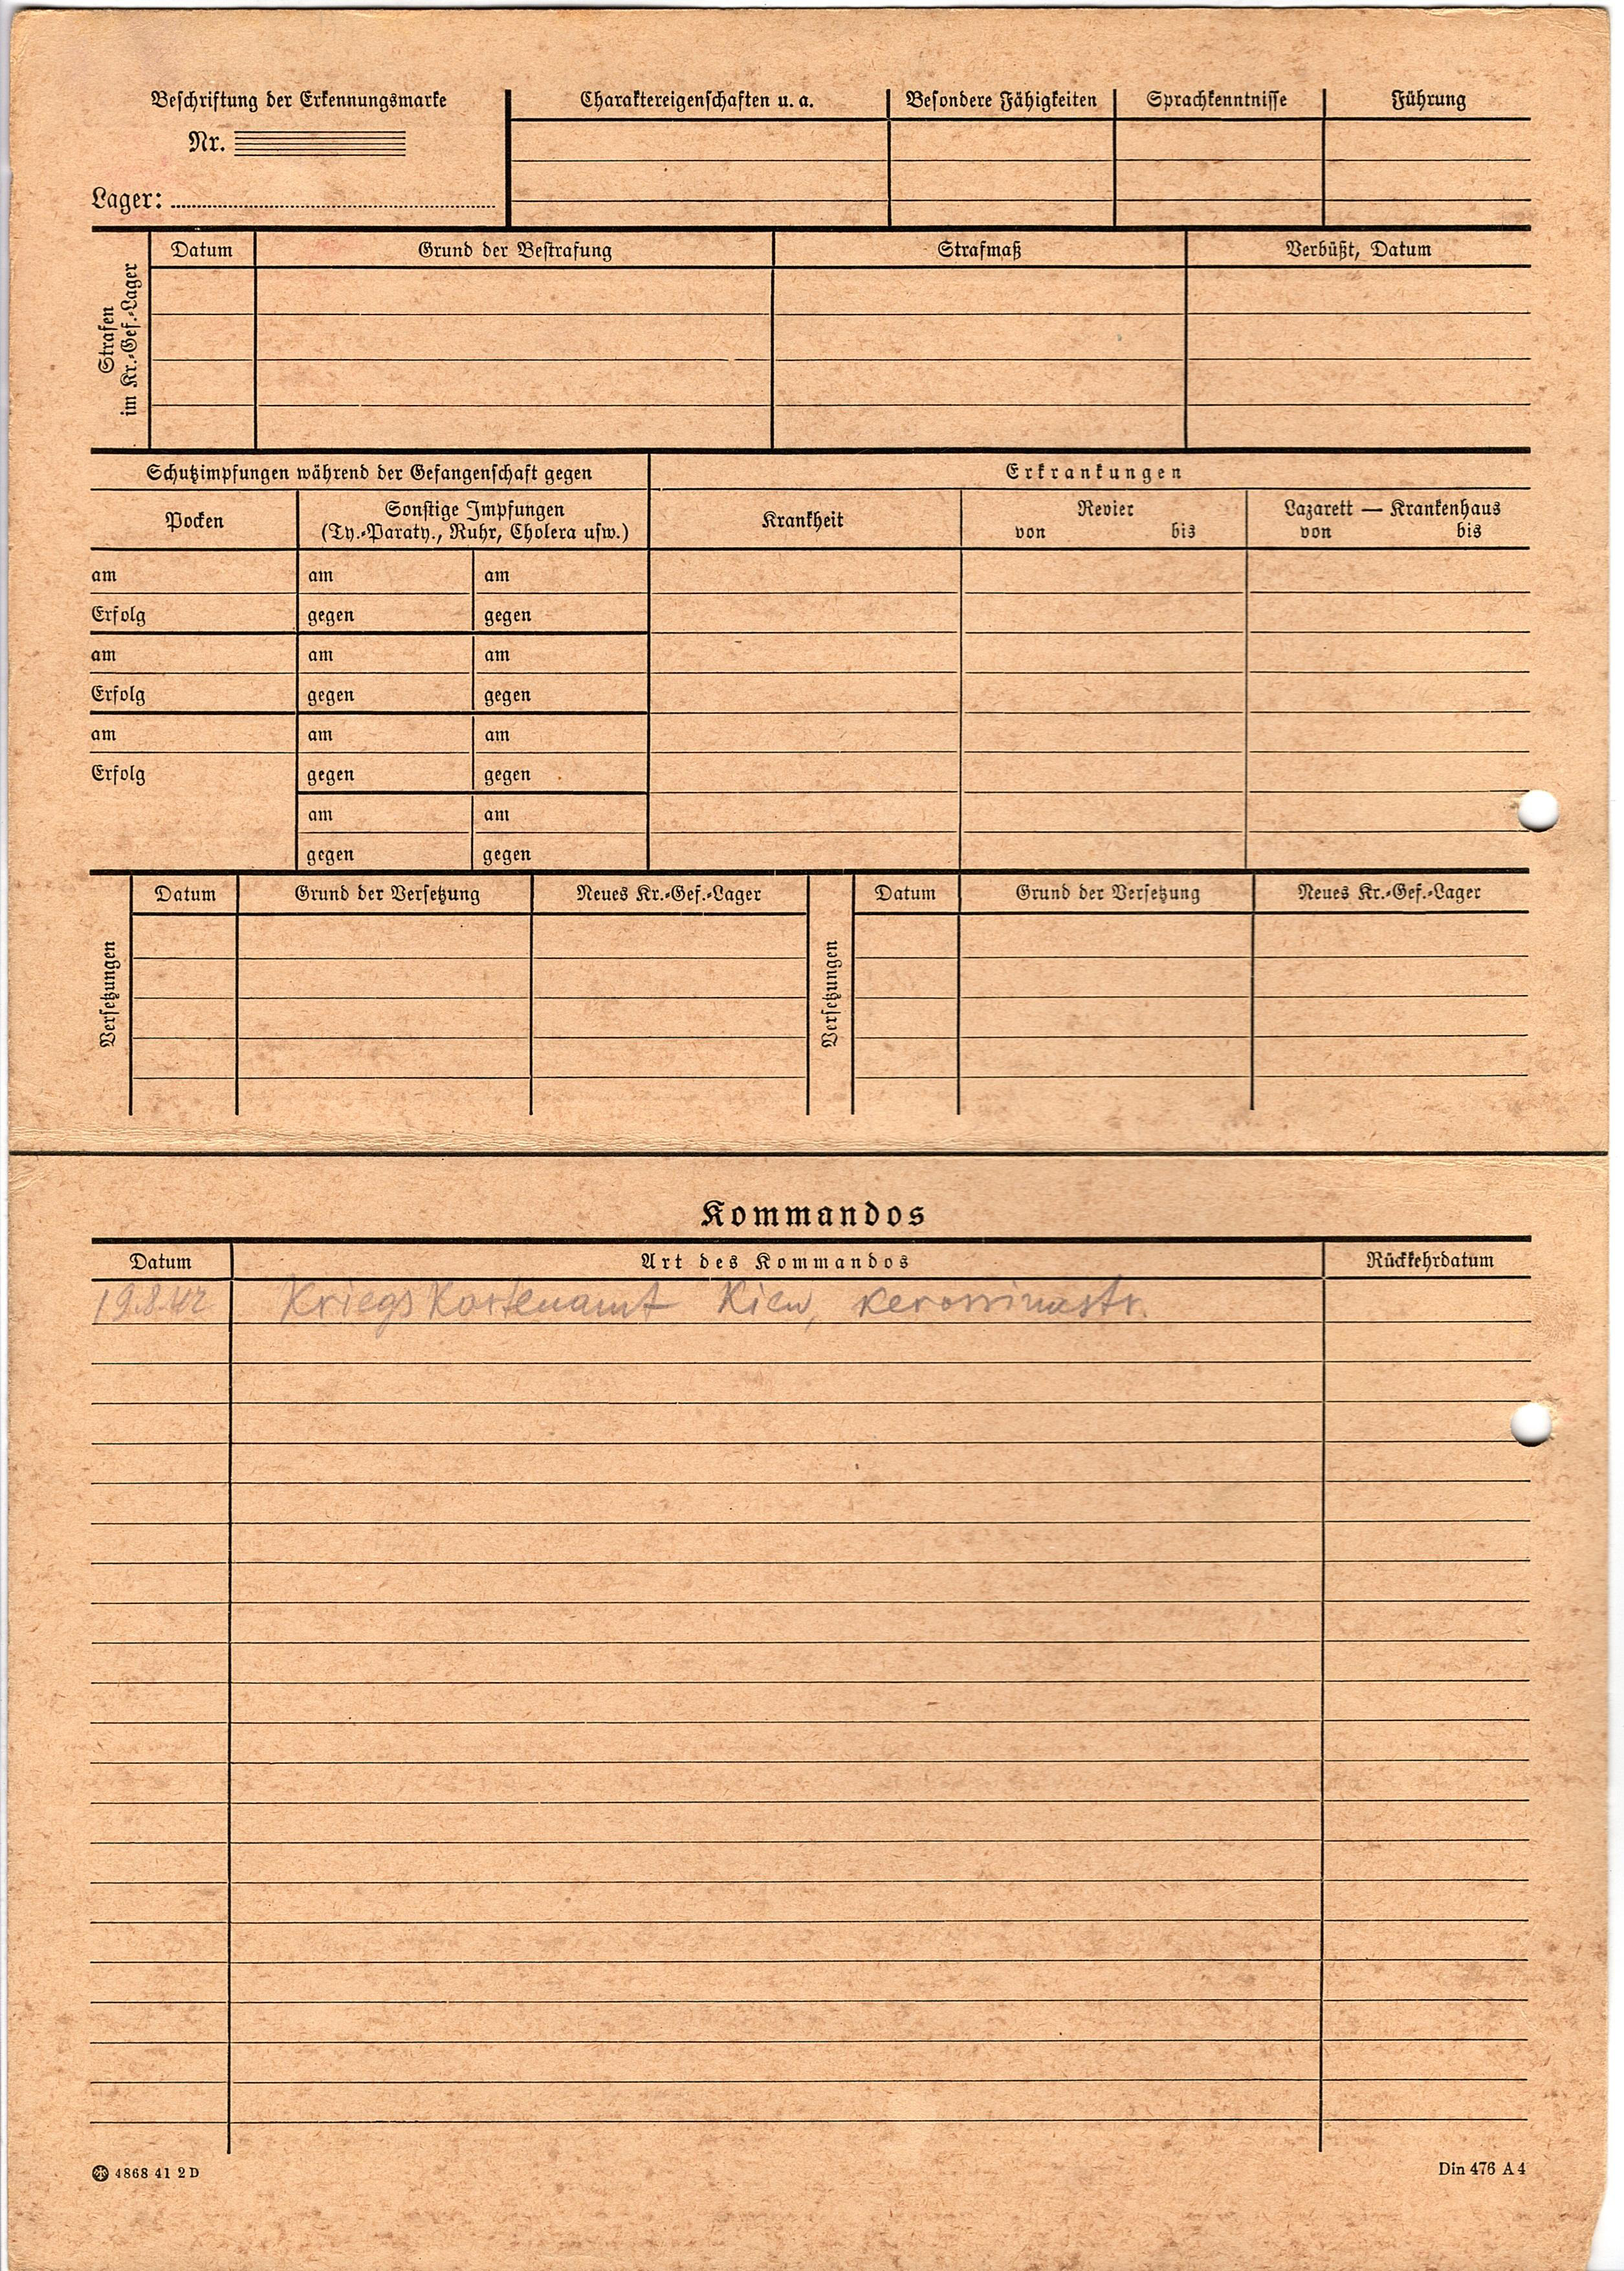 Beschriftung der Erkennungsmarke
Nr.
Lager:
Charaktereigenschaften u. a.
Besondere Fähigkeiten
Sprachkenntnisse
Führung
Strafen
im Kr.-Gef.-Lager
Datum
Grund der Bestrafung
Strafmaß
Verbüßt, Datum
Schutzimpfungen während der Gefangenschaft gegen
Erkrankungen
Pocken
Sonstige Impfungen
(Ty.-Paraty., Ruhr, Cholera usw.)
Krankheit
Revier
von bis
Lazarett — Krankenhaus
von bis
am am am
Erfolg gegen gegen
am am am
Erfolg gegen gegen
am am am
Erfolg gegen gegen
am am
gegen gegen
Versetzungen
Datum
Grund der Versetzung
Neues Kr.-Gef.-Lager
Versetzungen
Datum
Grund der Versetzung
Neues Kr.-Gef.-Lager
Kommandos
Datum
Art des Kommandos
Rückkehrdatum
19.8.42 Kriegs Kartenamt Kiew,
4868 41 2 D
Din 476 A 4